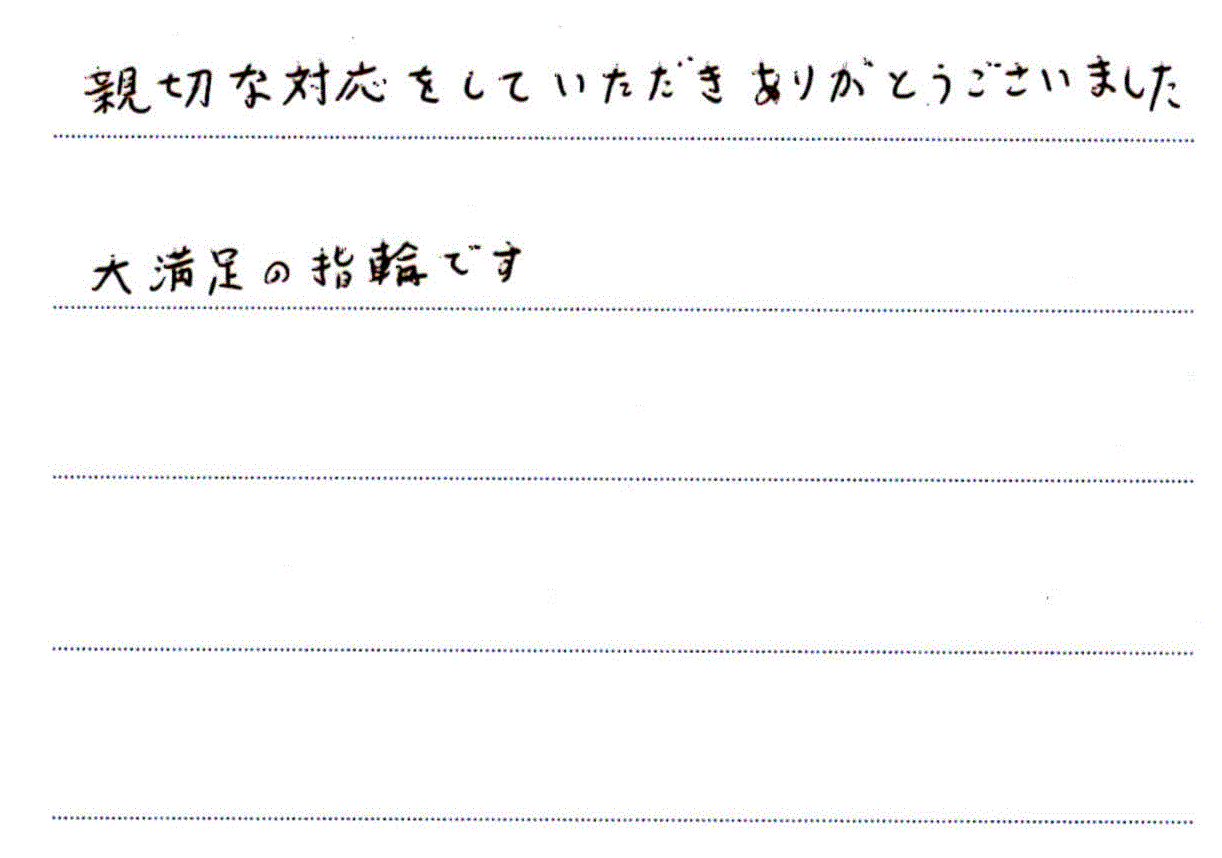 親切な対応をしていただきありがとうございました
大満足の指輪です